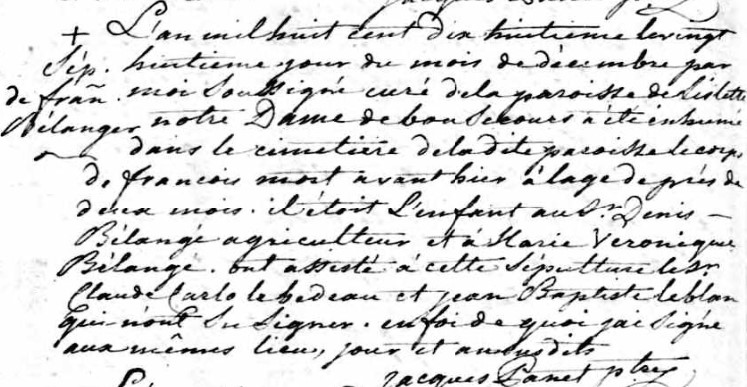 + L'an mil huit cent dix huitieme le vingt
Sép. huitieme jour du mois de décembre par
de fran. moi Soussigné curé de la paroisse de Lislette
Bélanger notre Dame de bon Secours a été inhumé
dans le cimetiére de la dite paroisse le corps
de francois mort avant hier à lage de prés de
deux mois. il étoit L'enfant au Sr Denis –
Bélangé agriculteur et à Marie Veronique
Bélangé. ont assisté à cette Sépulture le Sr
Claude Carlo le bedeau et jean Baptiste leblan
qui n'ont Su Signer. en foi de quoi jai Signé
aux mêmes lieu, jour et an susdits
Jacques Panet ptre